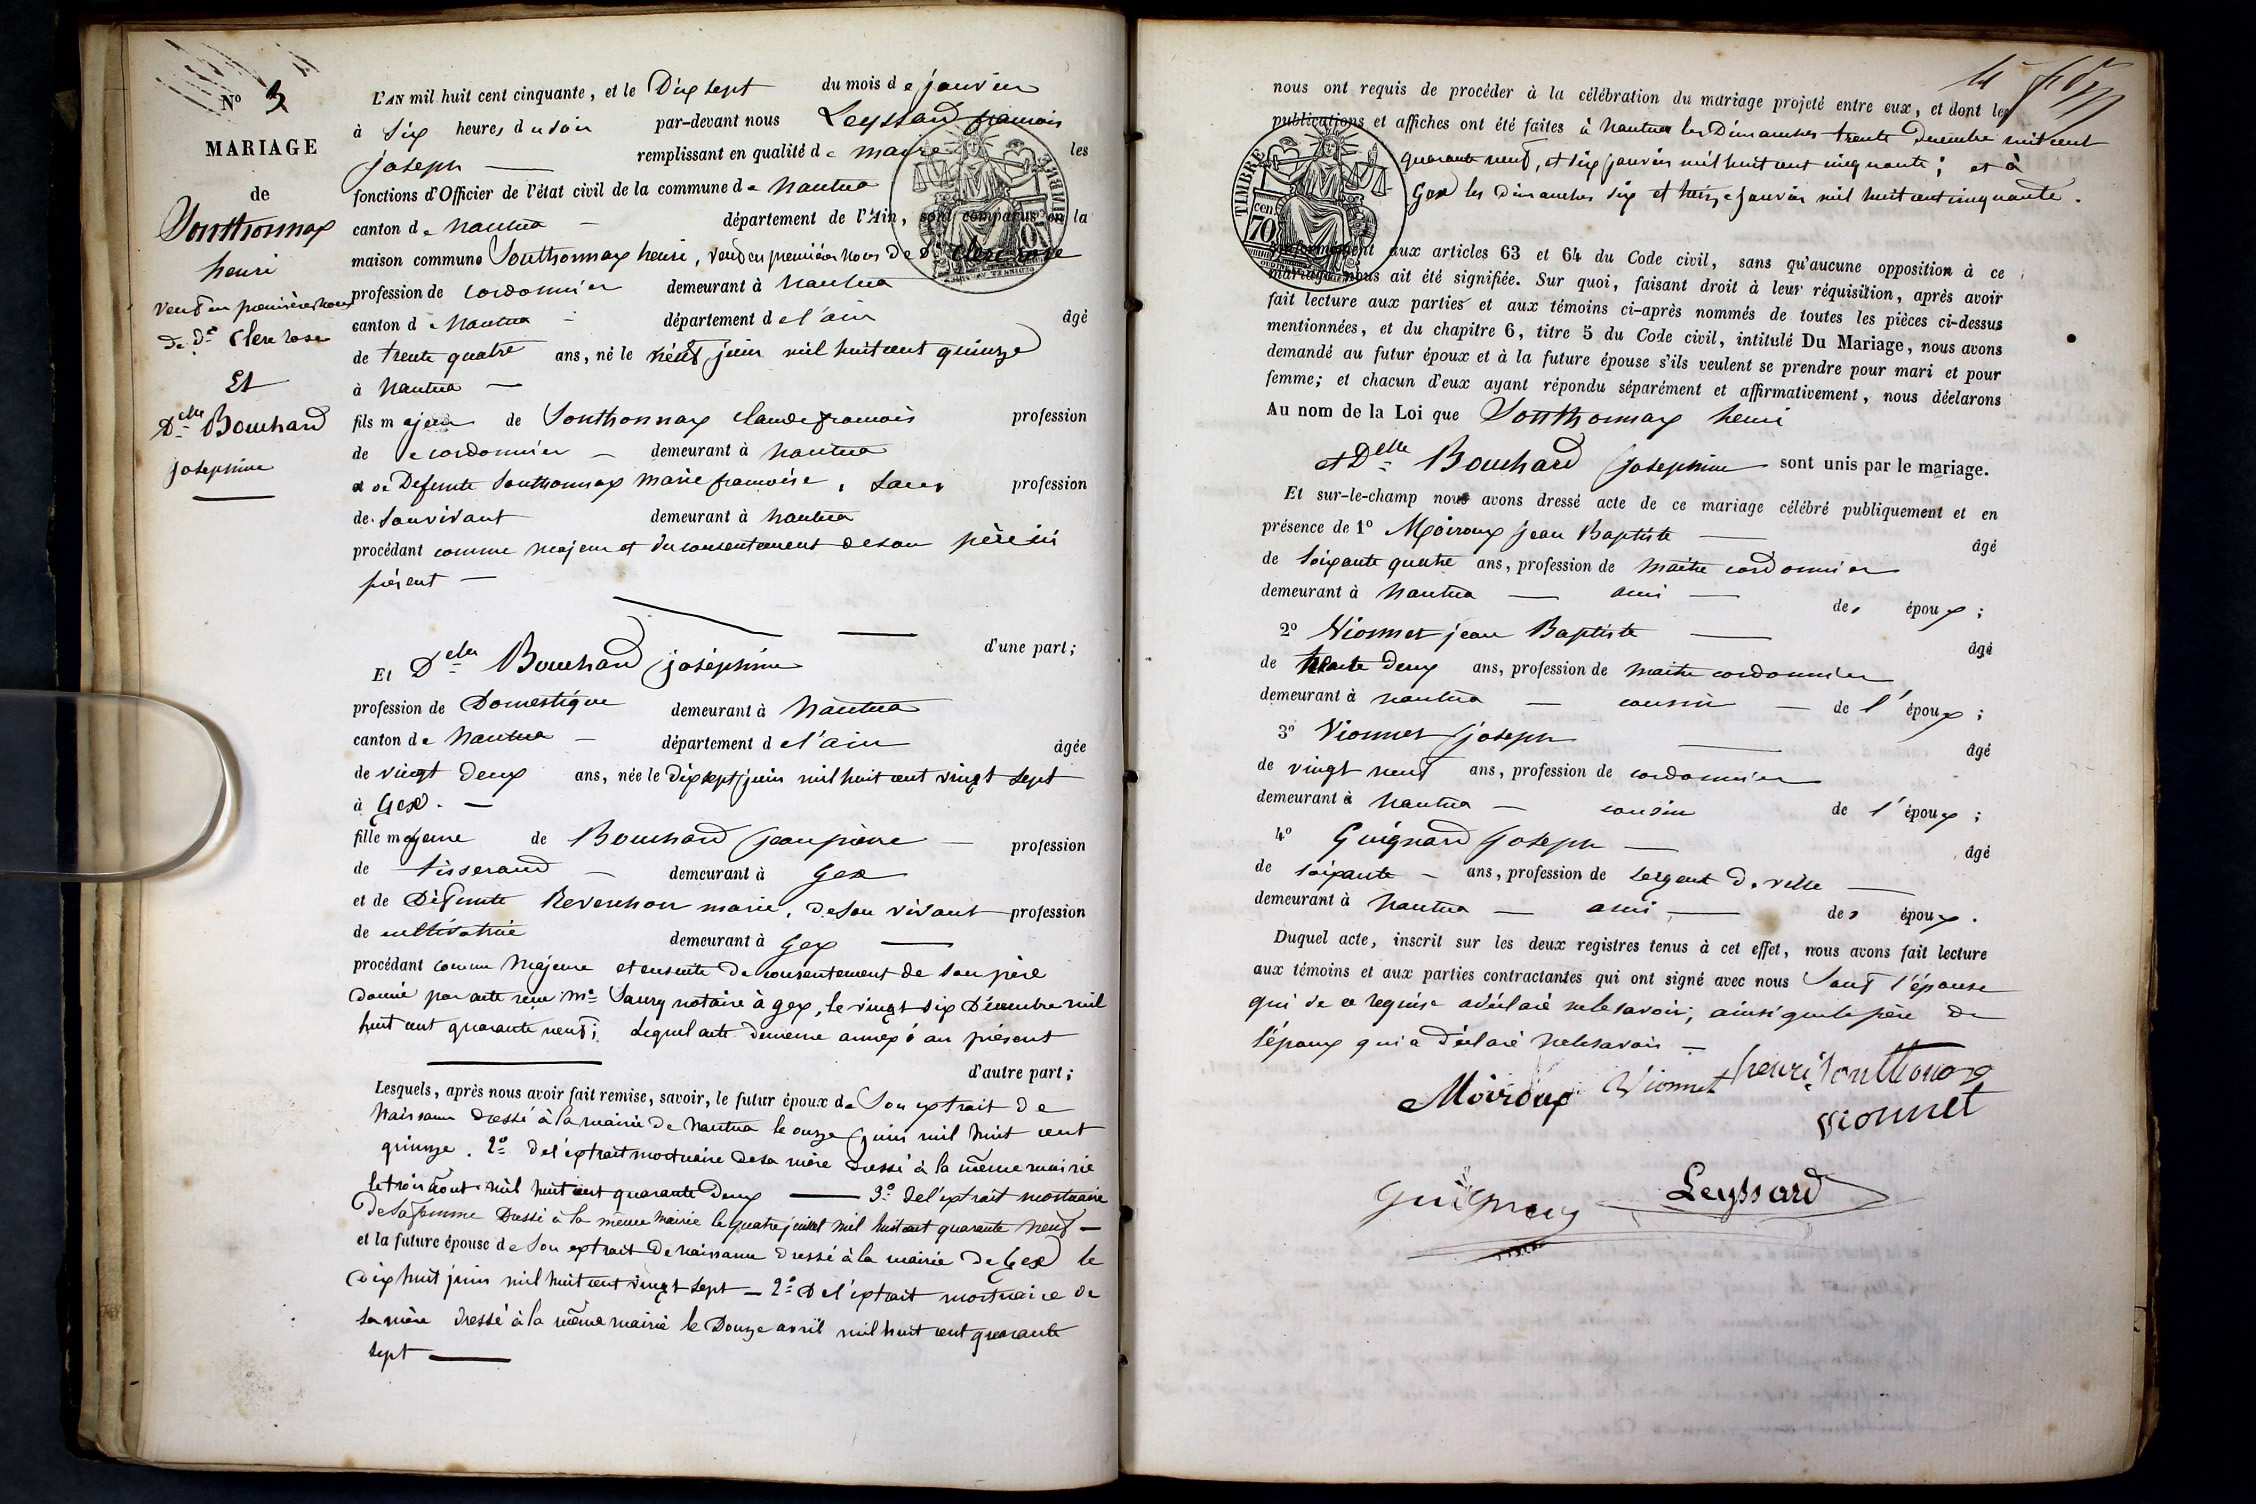 N° 3
MARIAGE
de
Southonnax
henri
veuf en premières noces
de De Clerc rose
Et
Delle Bouchard
josephine
L'AN mil huit cent cinquante, et le Dix sept du mois de janvier
à Six heures du soir par-devant nous Leyssard françois
joseph remplissant en qualité de maire les
fonctions d'Officier de l'état civil de la commune de Nantua
canton de Nantua département de l'Ain, sont comparus en la
maison commune Southonnax henri, veuf en premières noces De De Clerc rose
profession de cordonnier demeurant à Nantua
canton de Nantua département de l'ain âgé
de trente quatre ans, né le neuf juin mil huit cent quinze
à Nantua
fils majeur de Southonnax Claude françois profession
de cordonnier demeurant à Nantua
et de Defunte Southonnax Marie françoise, Sans profession
de Son vivant demeurant à Nantua
procédant comme majeur et du consentement de son père ici
présent
d'une part;
Et Delle Bouchard joséphine
profession de Domestique demeurant à Nantua
canton de Nantua département de l'ain âgée
de vingt deux ans, née le dix sept juin mil huit cent vingt sept
à Gex.
fille majeure de Bouchard jean pierre profession
de tisserand demeurant à Gex
et de Défunte Reverchon marie, de son vivant profession
de cultivatrice demeurant à Gex
procédant comme Majeure et ensuite du consentement de son père
donné par acte reçu Me Saury notaire à gex, le vingt six Décembre mil
huit cent quarante neuf; Lequel acte demeure annexé au présent
d'autre part;
Lesquels, après nous avoir fait remise, savoir, le futur époux de Son extrait de
Naissance dressé à la mairie de Nantua le onze juin mil huit cent
quinze. 2° de l'extrait mortuaire de sa mère dressé à la même mairie
le trois août mil huit cent quarante deux 3° de l'extrait mortuaire
De Sa femme Dressé à la même Mairie le quatre juillet mil huit cent quarante neuf
et la future épouse de Son extrait de naissance dressé à la mairie de Gex le
dix huit juin mil huit cent vingt sept 2° De l'extrait mortuaire de
sa mère dressé à la même mairie le Douze avril mil huit cent quarante
sept
nous ont requis de procéder à la célébration du mariage projeté entre eux, et dont les
publications et affiches ont été faites à Nantua les Dimanches trente Decembre mil huit cent
quarante neuf, et six janvier mil huit cent cinquante; et à
Gex les dimanches six et treize janvier mil huit cent cinquante.
TIMBRE
cen
70
conformément aux articles 63 et 64 du Code civil, sans qu'aucune opposition à ce
mariage nous ait été signifiée. Sur quoi, faisant droit à leur réquisition, après avoir
fait lecture aux parties et aux témoins ci-après nommés de toutes les pièces ci-dessus
mentionnées, et du chapitre 6, titre 5 du Code civil, intitulé Du Mariage, nous avons
demandé au futur époux et à la future épouse s'ils veulent se prendre pour mari et pour
femme; et chacun d'eux ayant répondu séparément et affirmativement, nous déclarons
Au nom de la Loi que Southonnax henri
et Delle Bouchard josephine sont unis par le mariage.
Et sur-le-champ nous avons dressé acte de ce mariage célébré publiquement et en
présence de 1° Moiroux jean Baptiste âgé
de soixante quatre ans, profession de maitre cordonnier
demeurant à Nantua ami des époux;
2° Vionnet jean Baptiste âgé
de trente deux ans, profession de maitre cordonnier
demeurant à Nantua cousin de l'époux;
3° Vionnet joseph âgé
de vingt neuf ans, profession de cordonnier
demeurant à Nantua cousin de l'époux;
4° Guignard joseph âgé
de soixante ans, profession de Sergent de ville
demeurant à Nantua ami des époux.
Duquel acte, inscrit sur les deux registres tenus à cet effet, nous avons fait lecture
aux témoins et aux parties contractantes qui ont signé avec nous Sauf l'épouse
qui de ce requise a déclaré ne le savoir, ainsi que le père de
l'époux qui a déclaré ne le savoir
Moiroux Vionnet henri Southonax
vionnet
Guignard Leyssard